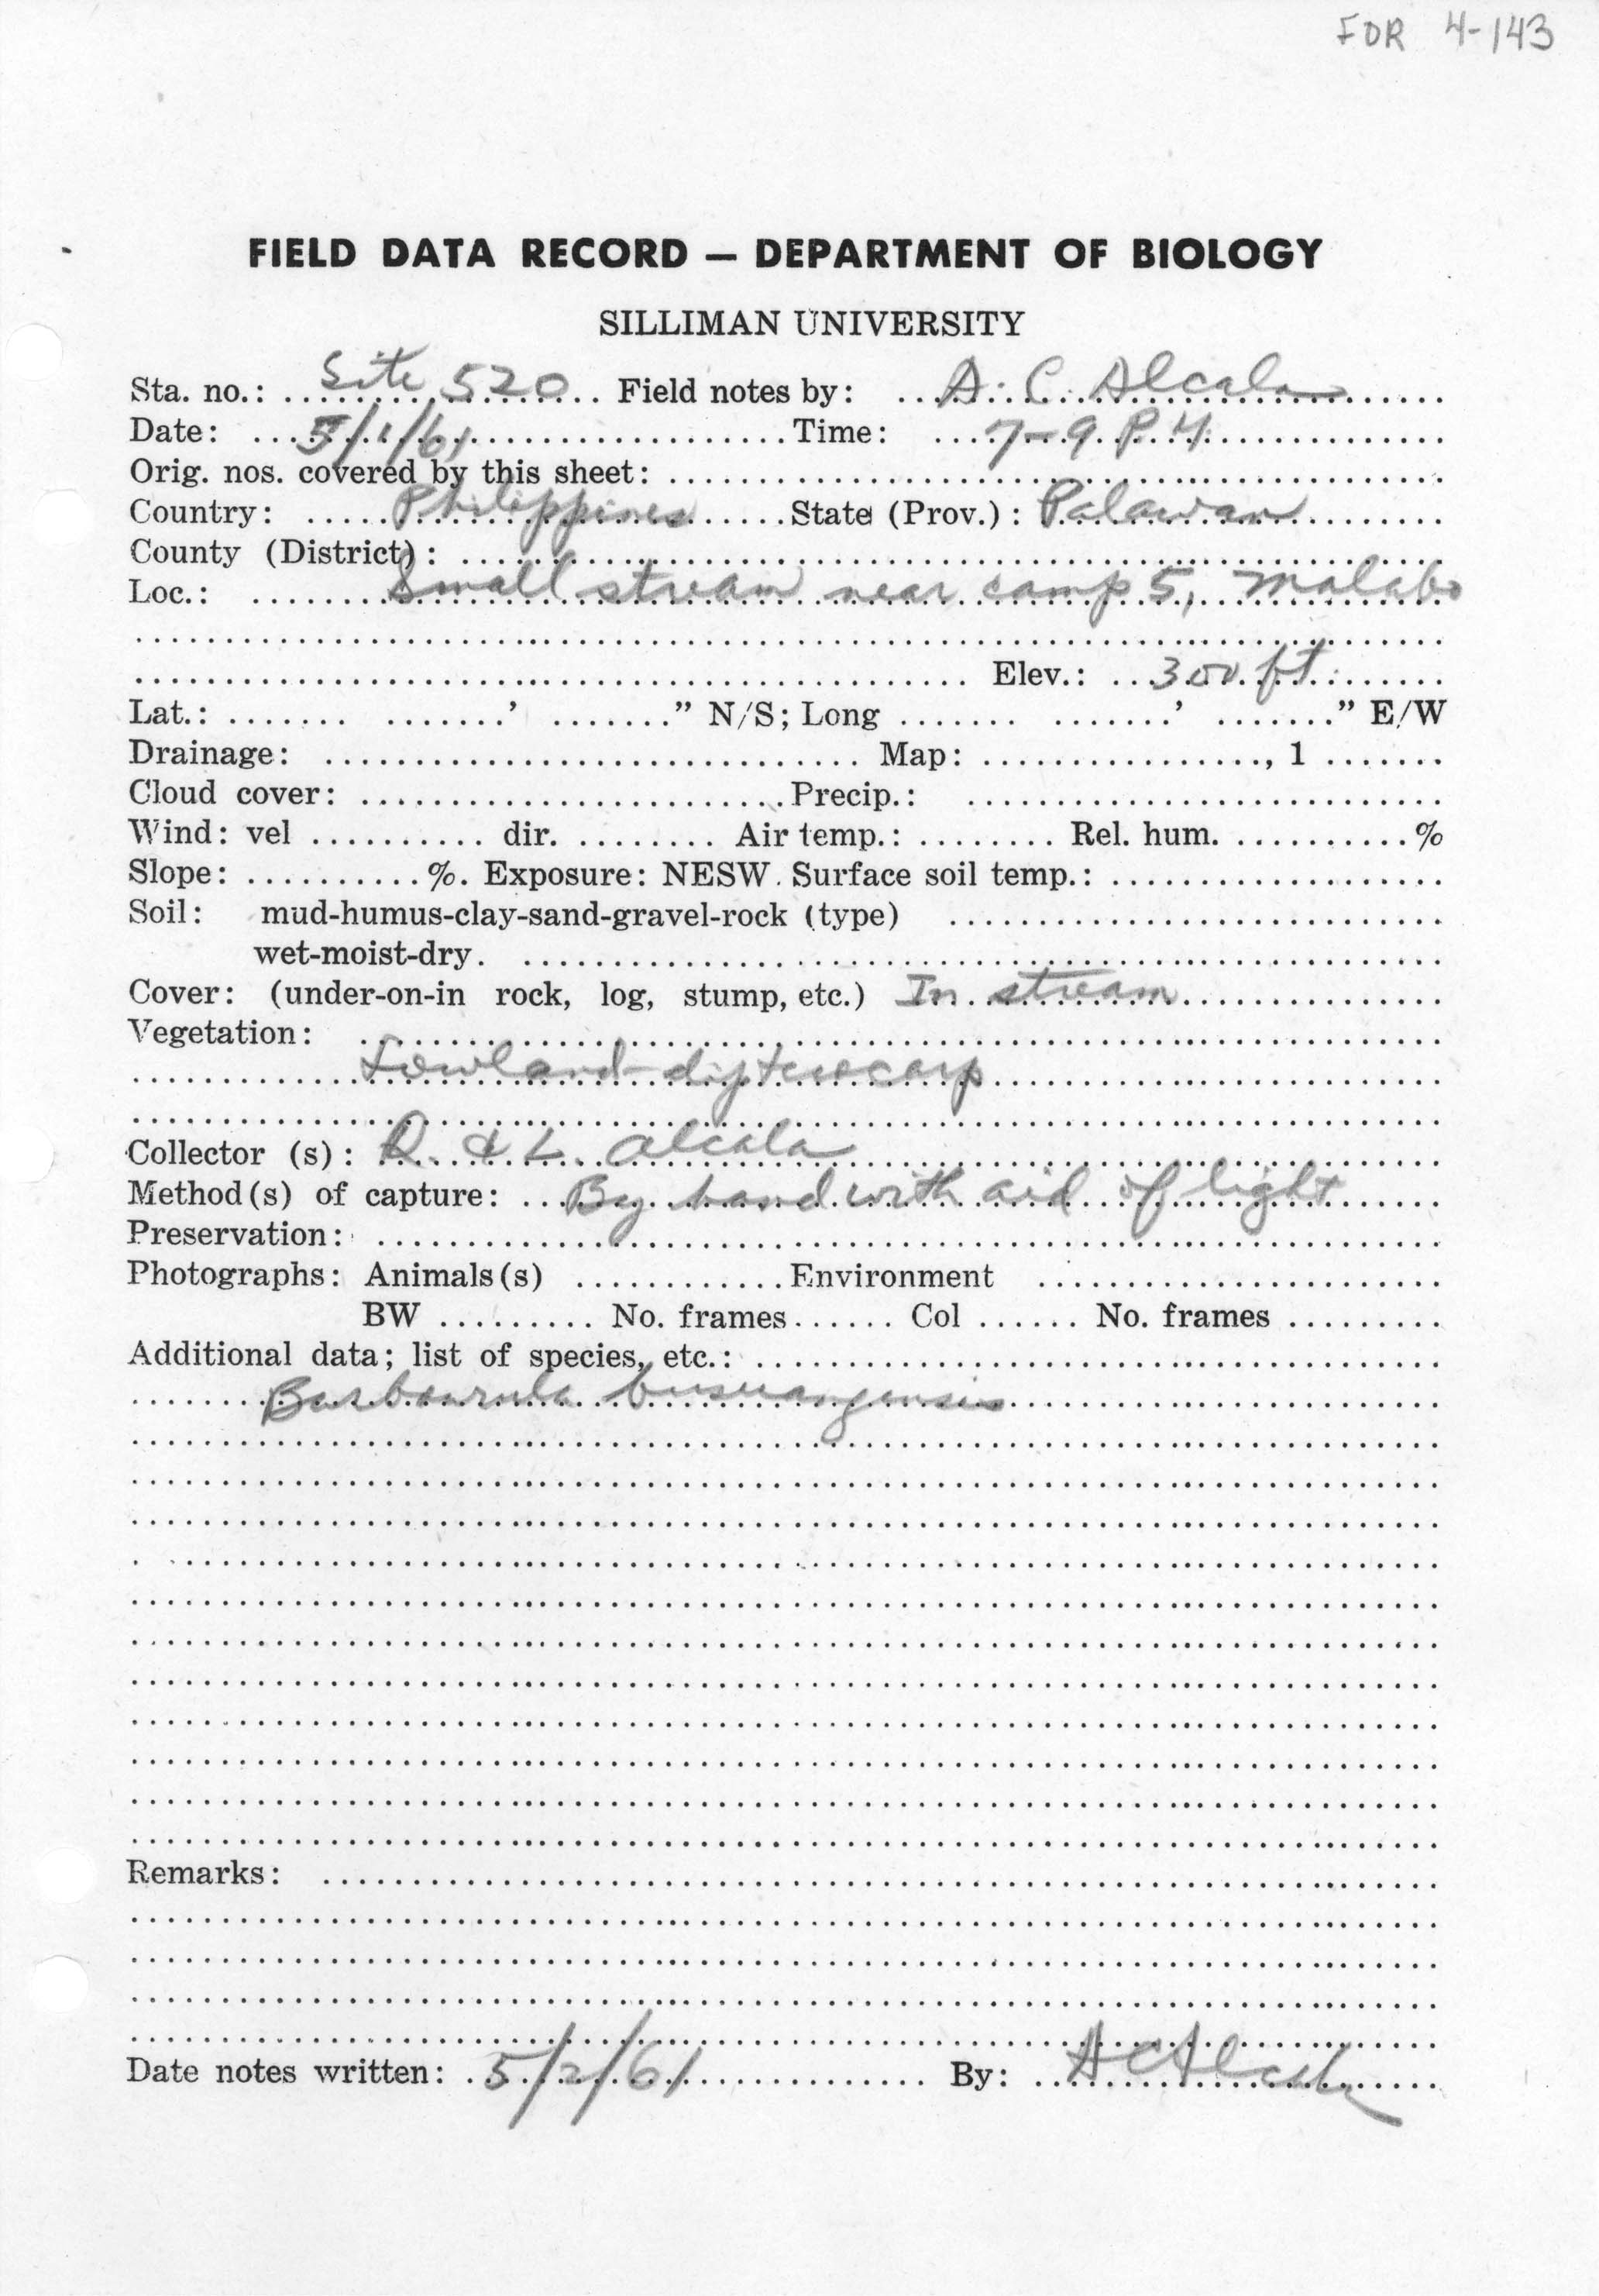 FDR 4-143
FIELD DATA RECORD — DEPARTMENT OF BIOLOGY
SILLIMAN UNIVERSITY
Sta. no.: Site 520 Field notes by: A. C. Alcala
Date: 5/1/61 Time: 7-9 P.M.
Orig. nos. covered by this sheet:
Country: Philippines State (Prov.): Palawan
County (District):
Loc.: Small stream near camp 5, Malabo
Elev.: 300 ft.
Lat.: ' " N/S; Long ' " E/W
Drainage: Map: , 1
Cloud cover: Precip.:
Wind: vel dir. Air temp.: Rel. hum. %
Slope: %. Exposure: NESW. Surface soil temp.:
Soil: mud-humus-clay-sand-gravel-rock (type)
wet-moist-dry.
Cover: (under-on-in rock, log, stump, etc.) In stream
Vegetation:
Lowland dipterocarp
Collector (s): & L. Alcala
Method(s) of capture: By hand with aid of light
Preservation:
Photographs: Animals(s) Environment
BW No. frames Col No. frames
Additional data; list of species, etc.:
Barbourula busuangensis
Remarks:
Date notes written: 5/2/61 By: ACAlcala